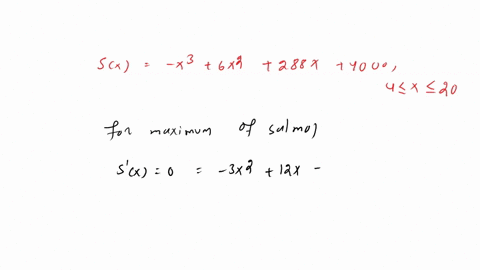 S(x) = -x³ + 6x² + 288x + 4000,
4 ≤ x ≤ 20
for maximum of salmo,
S'(x) = 0 = -3x² + 12x -